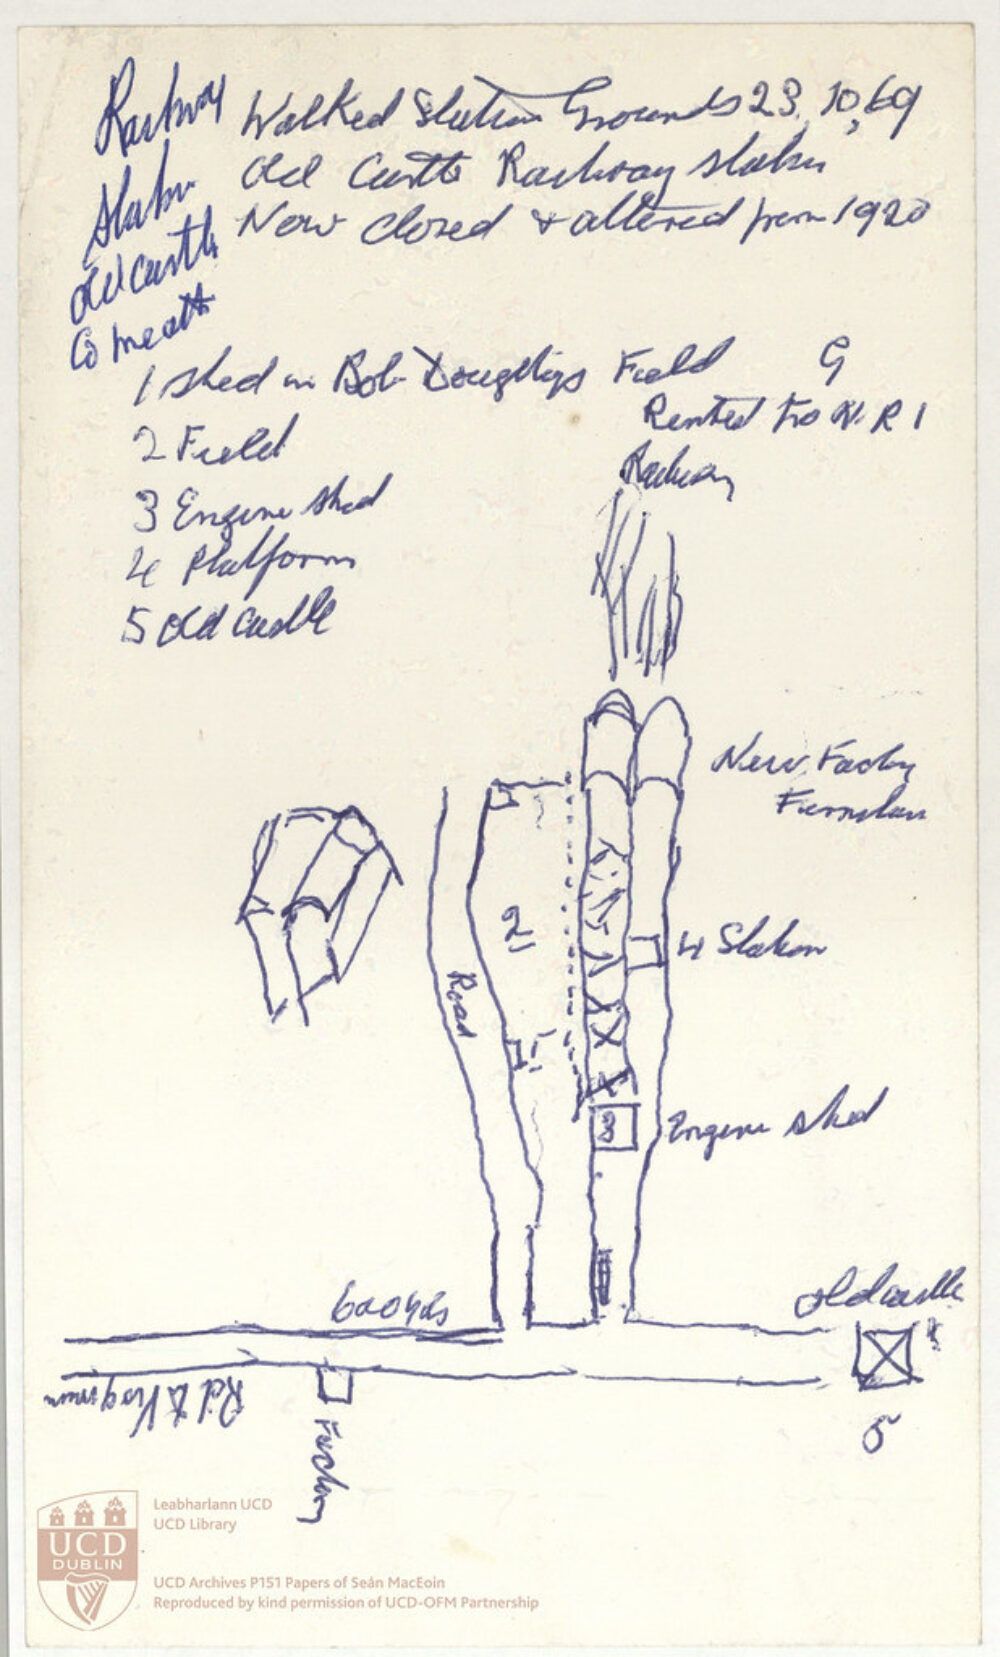 Railway
Station
Old Castle
Co Meath
Walked Station Grounds 23.10,69
Old Castle Railway Station
Now closed & altered from 1920
1 Shed in Bob Field G
2 Field
Rented to
3 Engine Shed
Railway
4 Platform
5 Old Castle
New Factory
Furniture
2
4 Station
Road
1
3
Engine Shed
600 yds
Oldcastle
Rd to
Factory
5
Leabharlann UCD
UCD Library
UCD
DUBLIN
UCD Archives P151 Papers of Seán MacEoin
Reproduced by kind permission of UCD-OFM Partnership